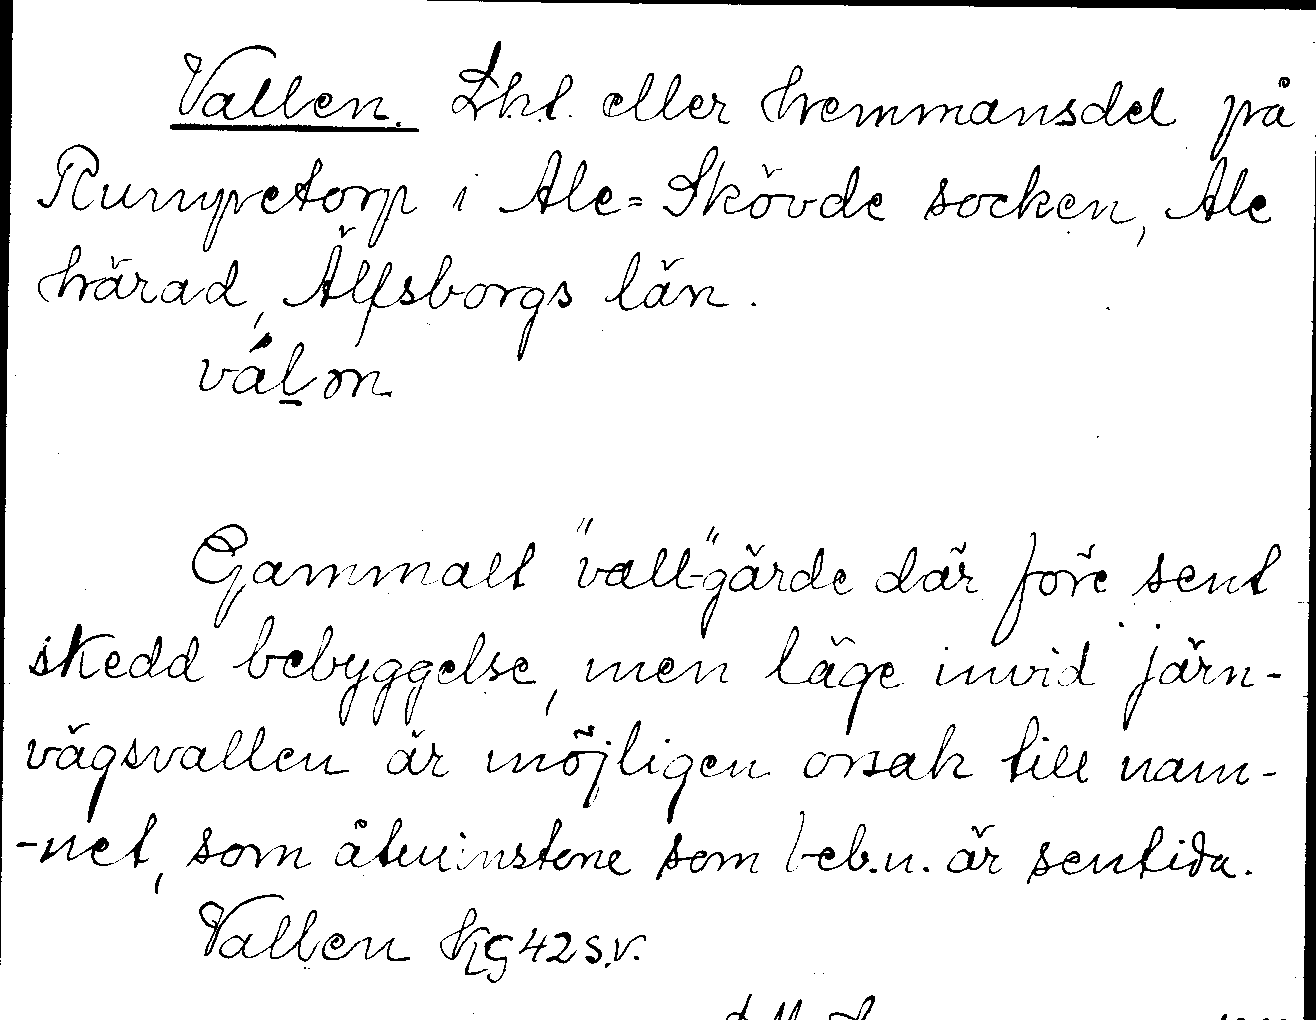 Vallen. Lht. eller hemmansdel på
Rumpetorp i Ale=Skövde socken, Ale
härad, Älfsborgs län.
válɷn
Gammalt "vall-"gärde där före sent
skedd bebyggelse, men läge invid järn-
vägsvallen är möjligen orsak till nam-
-net, som åtminstone som beb.n. är sentida.
Vallen KG 42 s.v.